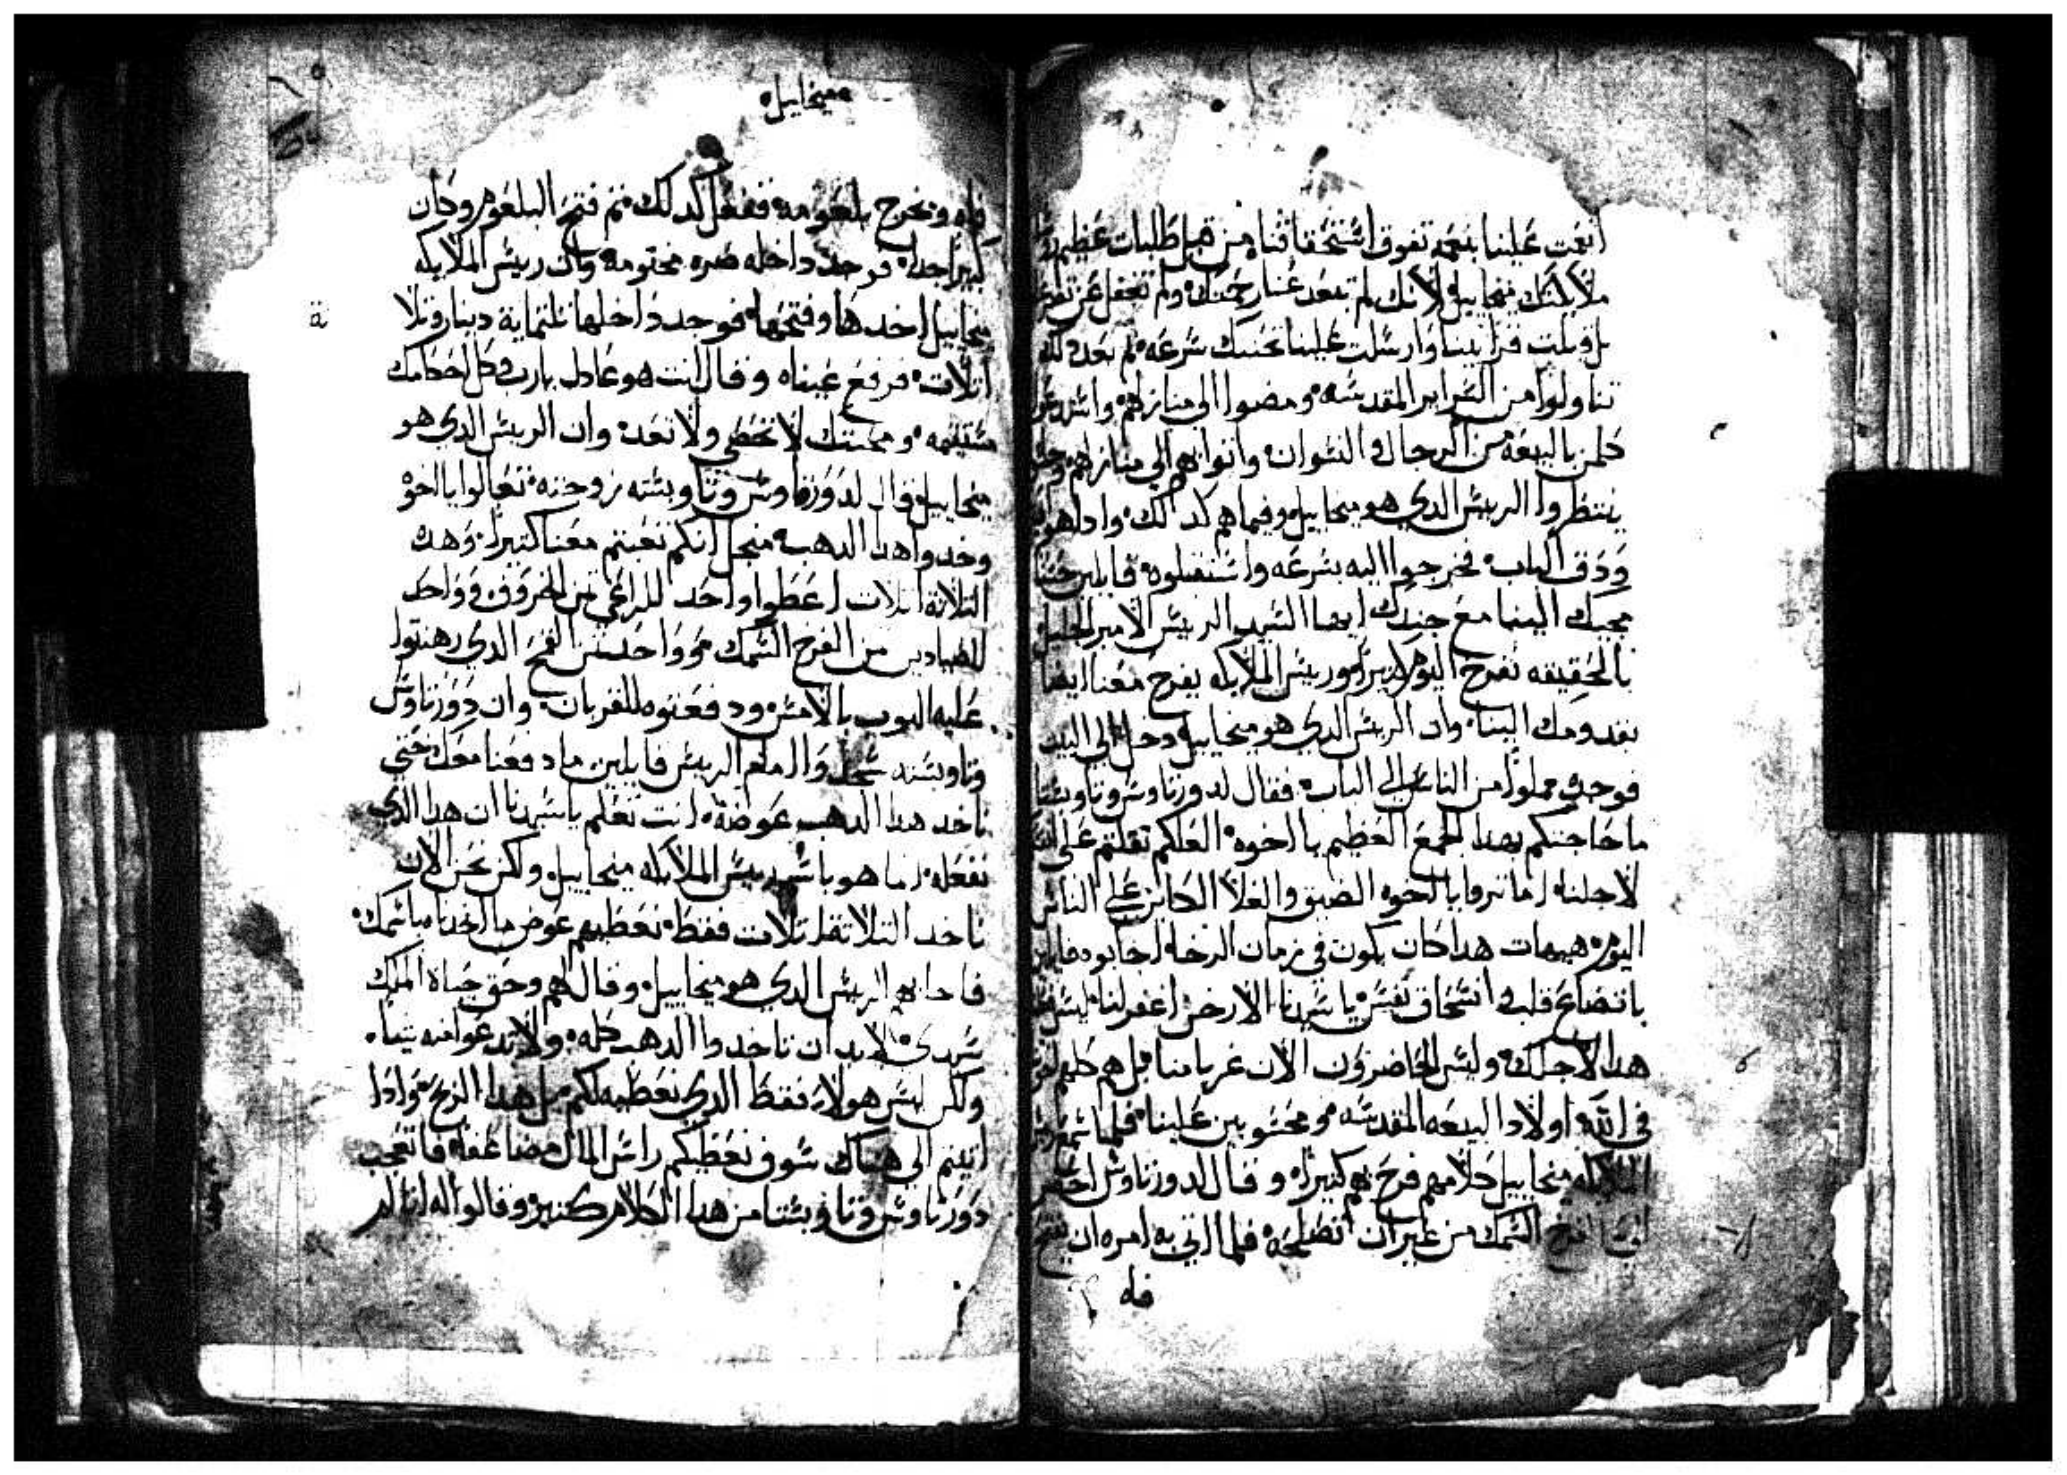 انعمت علينا بنعمه تفوق استحقاقنا من قبل طلبات عظيم
ملايكتك ميخاييل لانك لم تبعد عنا رحمتك ولم تغفل عن
بل قبلت قرابيننا وارسلت علينا تحننك سرعه ثم بعد ذلك
تناولوا من السراير المقدسه ومضوا الي منازلهم
كلمن بالبيعه من الرجال والنسوان واتوا بهم الي منازلهم
ينتظروا الرييس الدي هو ميخاييل وفيما هم كدالك وادا هو
ودق الباب فخرجوا اليه بسرعه واستقبلوه قايلين حسنا
مجيك الينا مع جندك ايها السيد الرييس الامير الجليل
بالحقيقه نفرح اليوم لان ورييس الملايكه يفرح معنا ايضا
بقدومك الينا وان الرييس الدي هو ميخاييل دخل الي البيت
فوجده مملوا من الناس الي الباب فقال لدورتاوس وتاوبستا
ما حاجتكم بهدا الجمع العظيم يا اخوه العلكم تقلتم علي
لاجلنا اما تروا يا اخوه الضيق والغلا الكاين علي الناس
اليوم هيهات هدا كان يكون في زمان الرخا اجابوه قايلين
باتضاع قلب وانسحاق نفس يا سيدنا الارخن اغفر لنا ليس
هدا لاجلك وليس الحاضرون الان غربا منا بل هم كلهم
في الله اولاد البيعه المقدسه ومحسوبين علينا فلما سمع
الملايكه ميخاييل كلامهم فرح بهم كتيرا وقال لدورتاوس احضر
الي افرخ السمك من غير ان تصلحه فلما اتي به امره ان يفتح
فاه
ميخاييل
فاه ويخرج بلعومه ففعل كدلك ثم فتح البلعوم وكان
كبيرا جدا فوجد داخله صره مختومه وان رييس الملايكه
ميخاييل اخدها وفتحها فوجد داخلها تلتماية دينار وتلا
اتلات فرفع عيناه وقال انت هو عادل يارب وكل احكامك
مستقيمه ومحبتك لا تحصي ولا تعد وان الرييس الدي هو
ميخاييل قال لدورتاوس وتاوبسته زوجته تعالوا يا اخوه
وخدوا هدا الدهب منجل انكم تعبتم معنا كتيرا وهده
التلاتة اتلات اعطوا واحد للراعي تمن الخروف وواحد
للصيادين من الفرخ السمك وواحد تمن القمح الدي رهنتوا
عليه التوب بالامس ودفعتوه للقربان وان دورتاوس
وتاوبسته سجدوا امام الرييس قايلين مادفعنا معك حتي
ناخد هدا الدهب عوضه انت تعلم يا سيدنا ان هدا الدي
نفعله انما هو باسم رييس الملايكه ميخاييل ولكن نحن الان
ناخد التلاتة اتلات فقط نعطيهم عوض ما اخدنا سا سمك
فاجابهم الرييس الدي هو ميخاييل وقال لهم وحق حياة الملك
سيدي لابد ان تاخدوا الدهب كله ولا تدعوا منه شيا
ولكن ليس هولا فقط الدي نعطيه لكم بل هدا الربح وادا
اتيتم الي هناك سوف نعطيكم راس المال مضاعفا فاتعجب
دورتاوس وتاوبستا من هدا الكلام كتير وقالوا له اننا لم